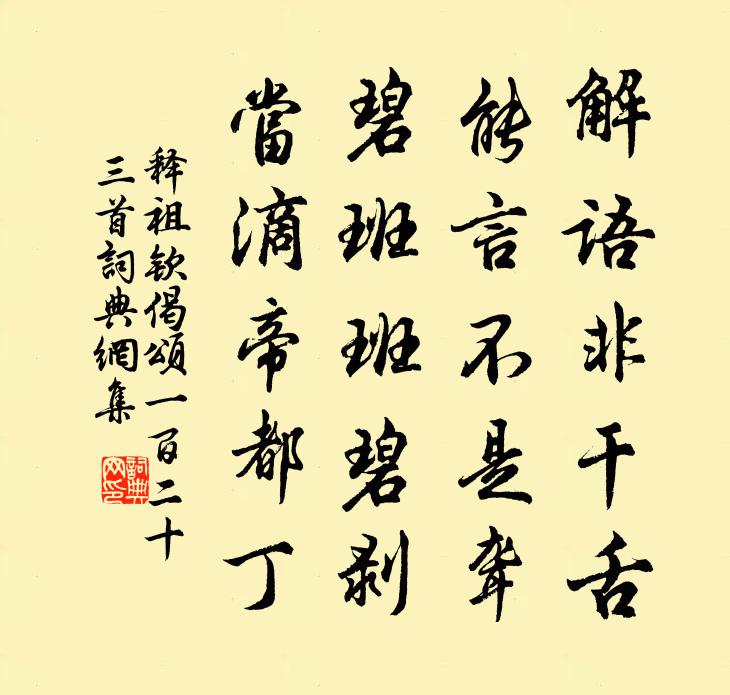 解語非干舌
能言不是聾
碧班班碧剥
當滴帝都丁
释祖欽偈頌一百二十
三首詞典網集
詞典網印